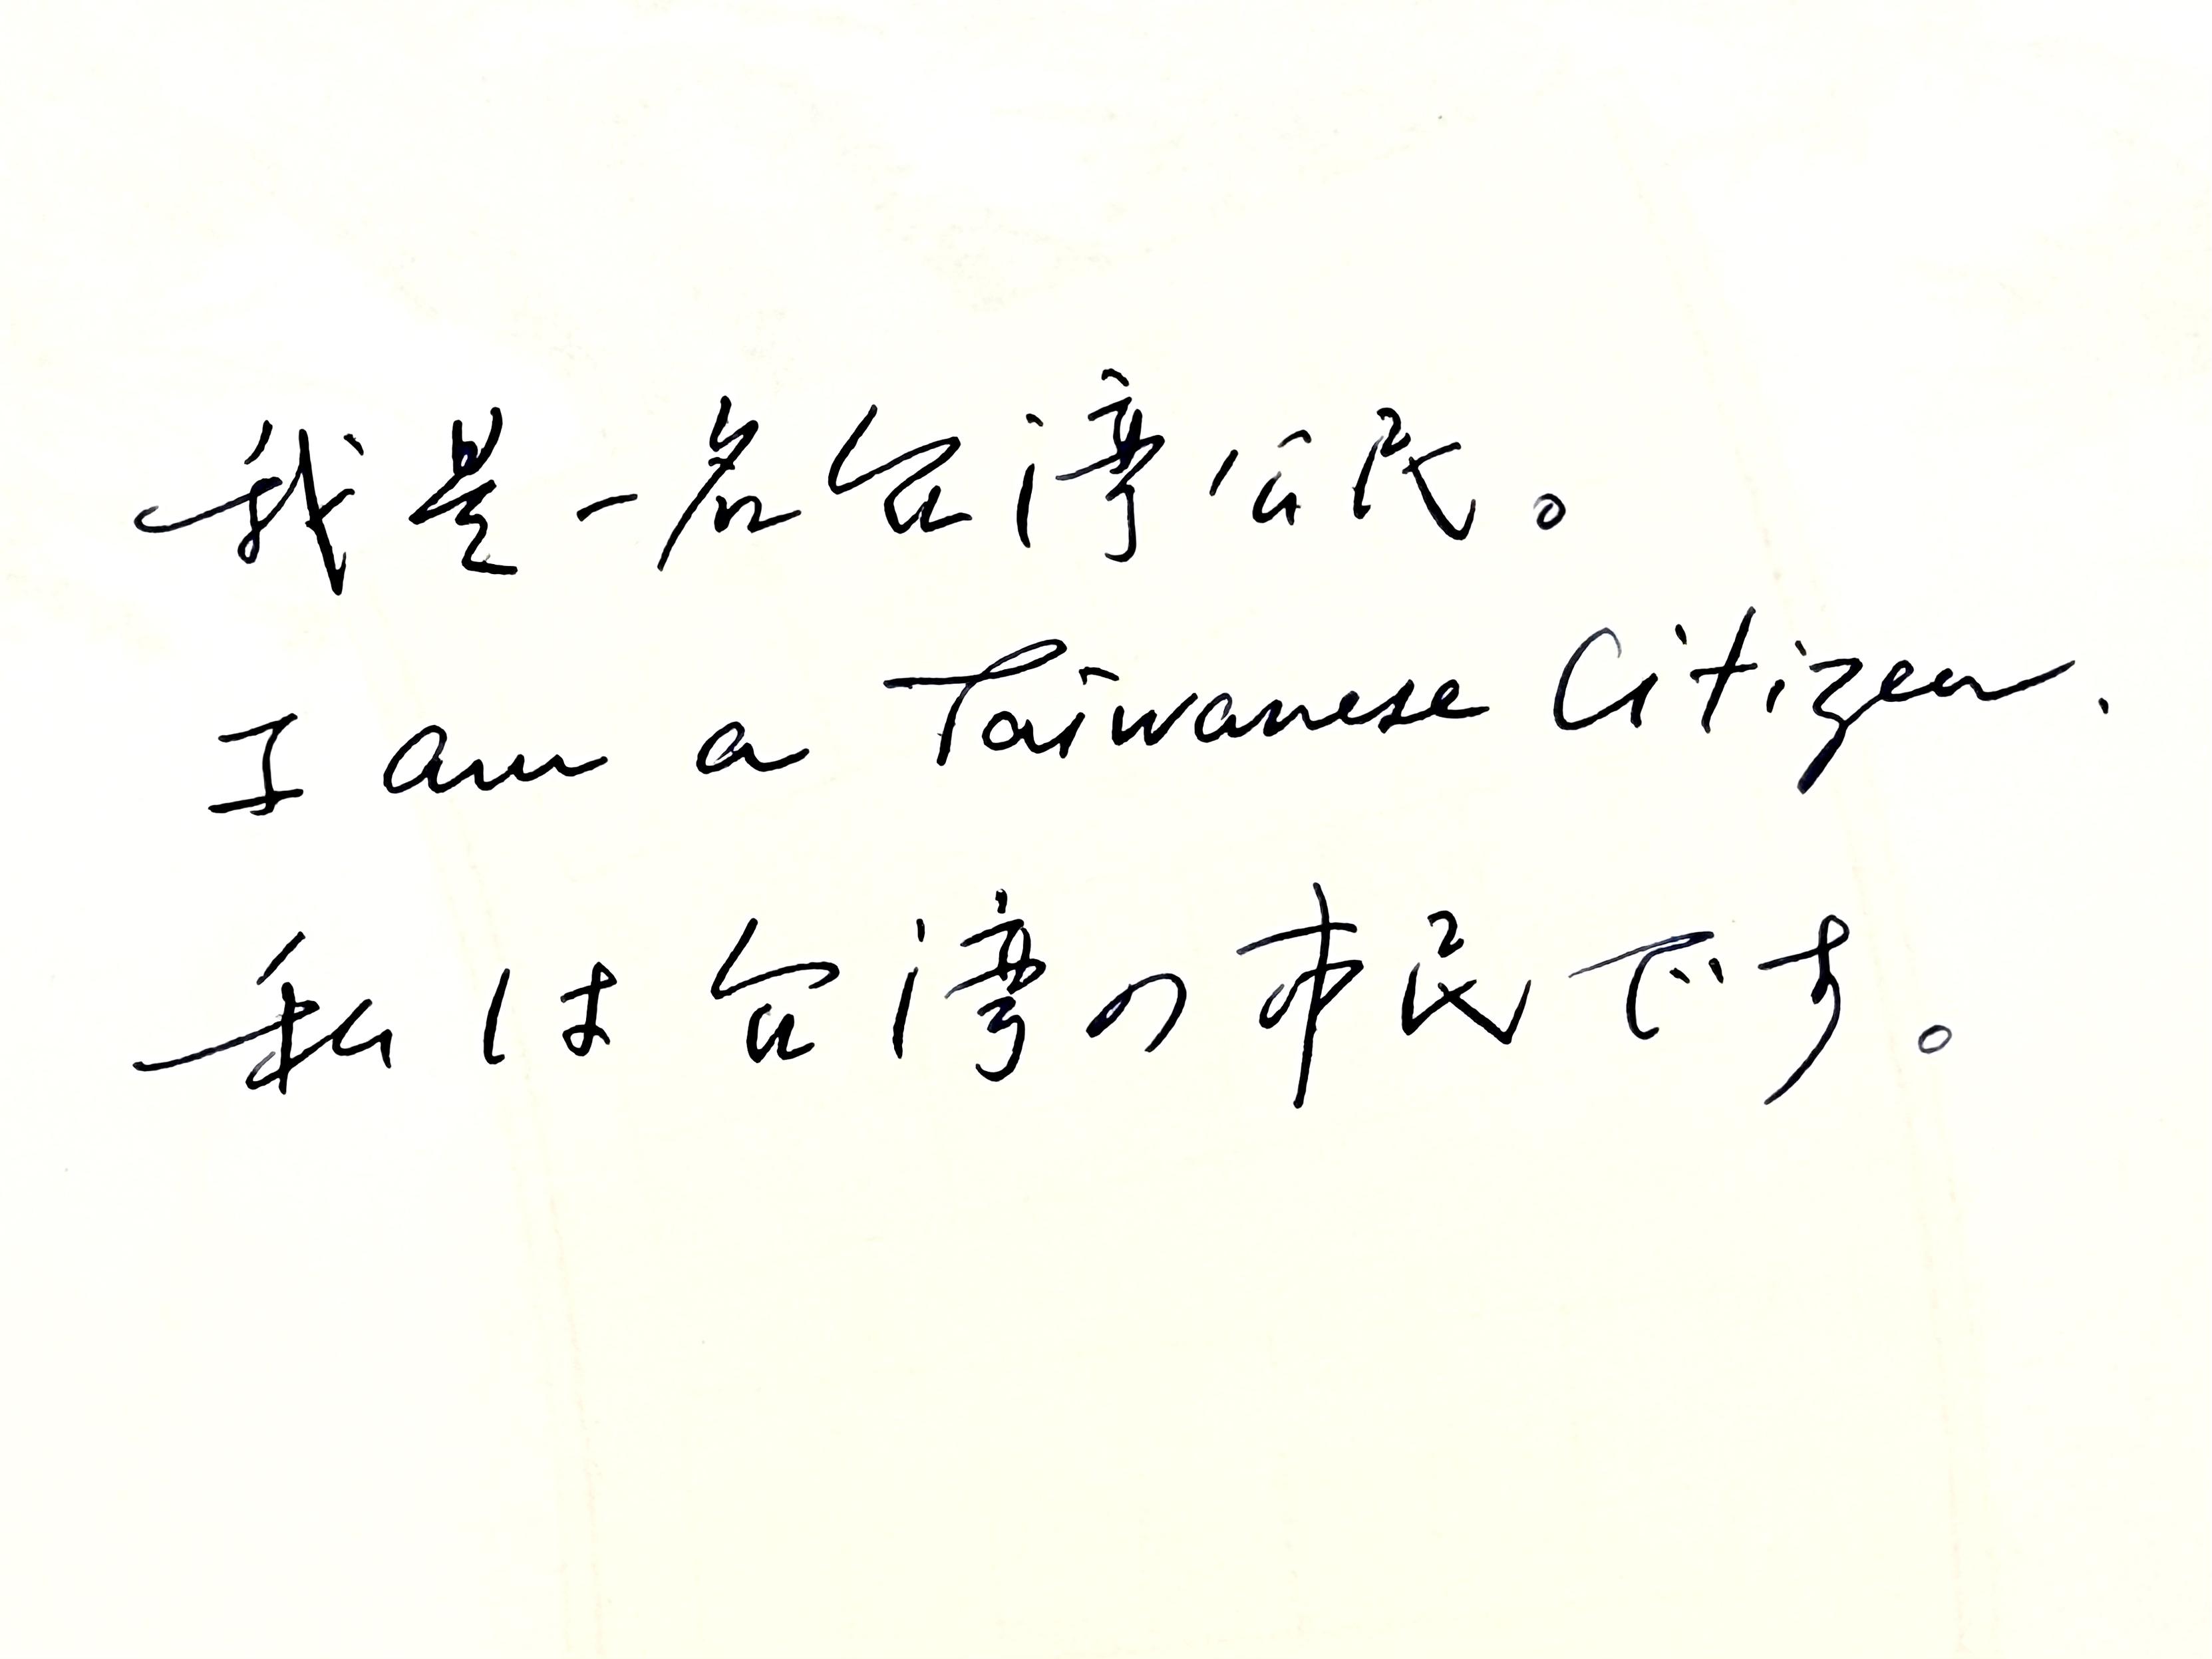 我是一名台湾公民。
I am a Taiwanese Citizen.
私は台湾の市民です。